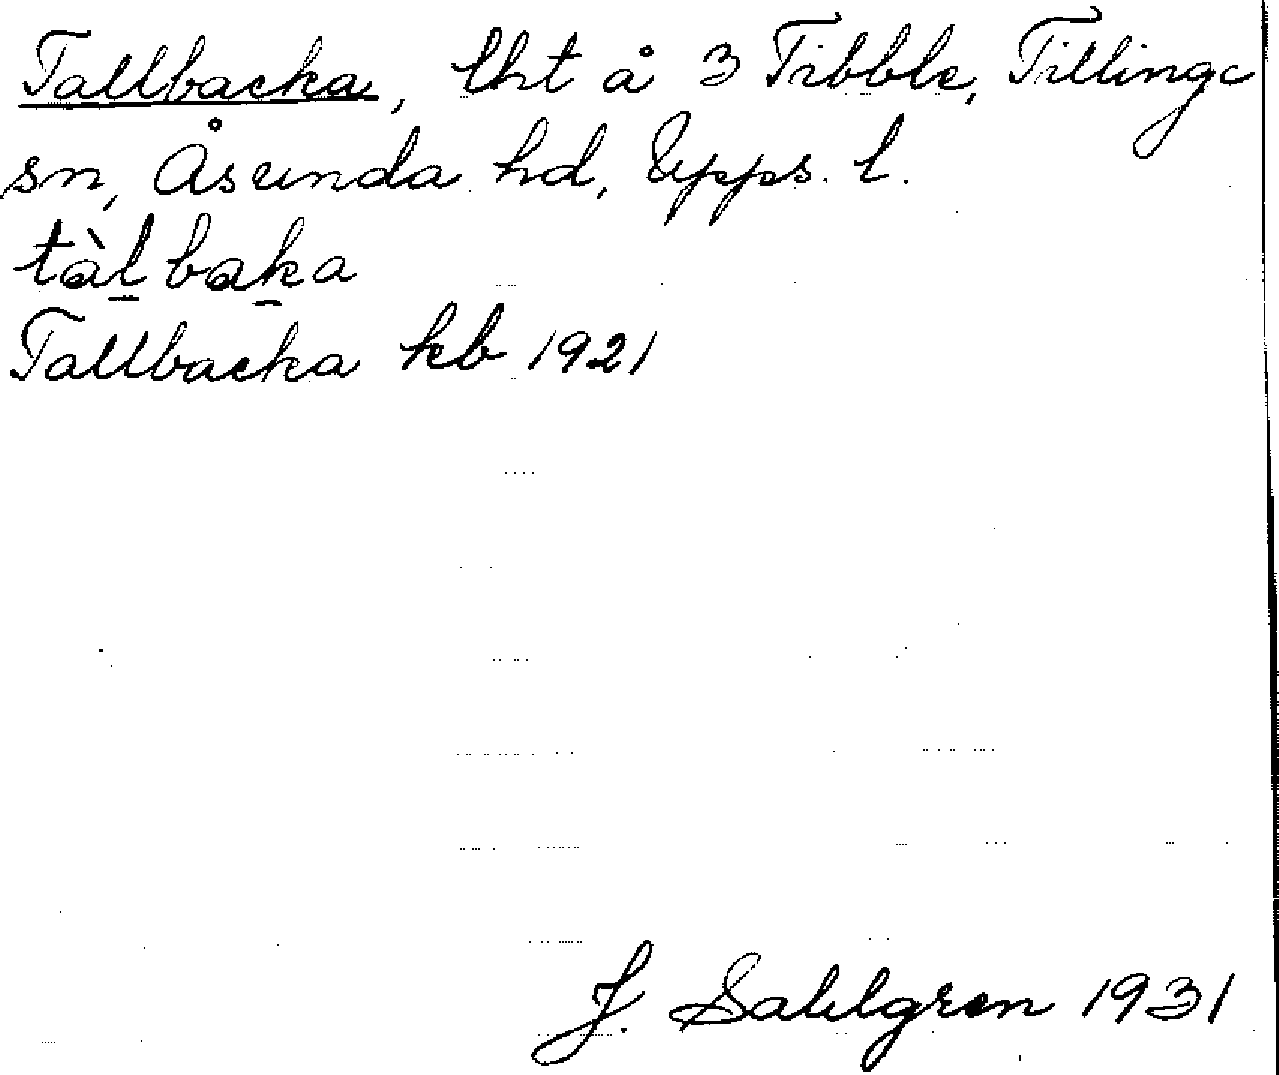 Tallbacka, lht å 3 Tibble, Tillinge
sn, Åsunda hd, Upps. l.
tàl̲bak̲a
Tallbacka kb 1921
J. Sahlgren 1931